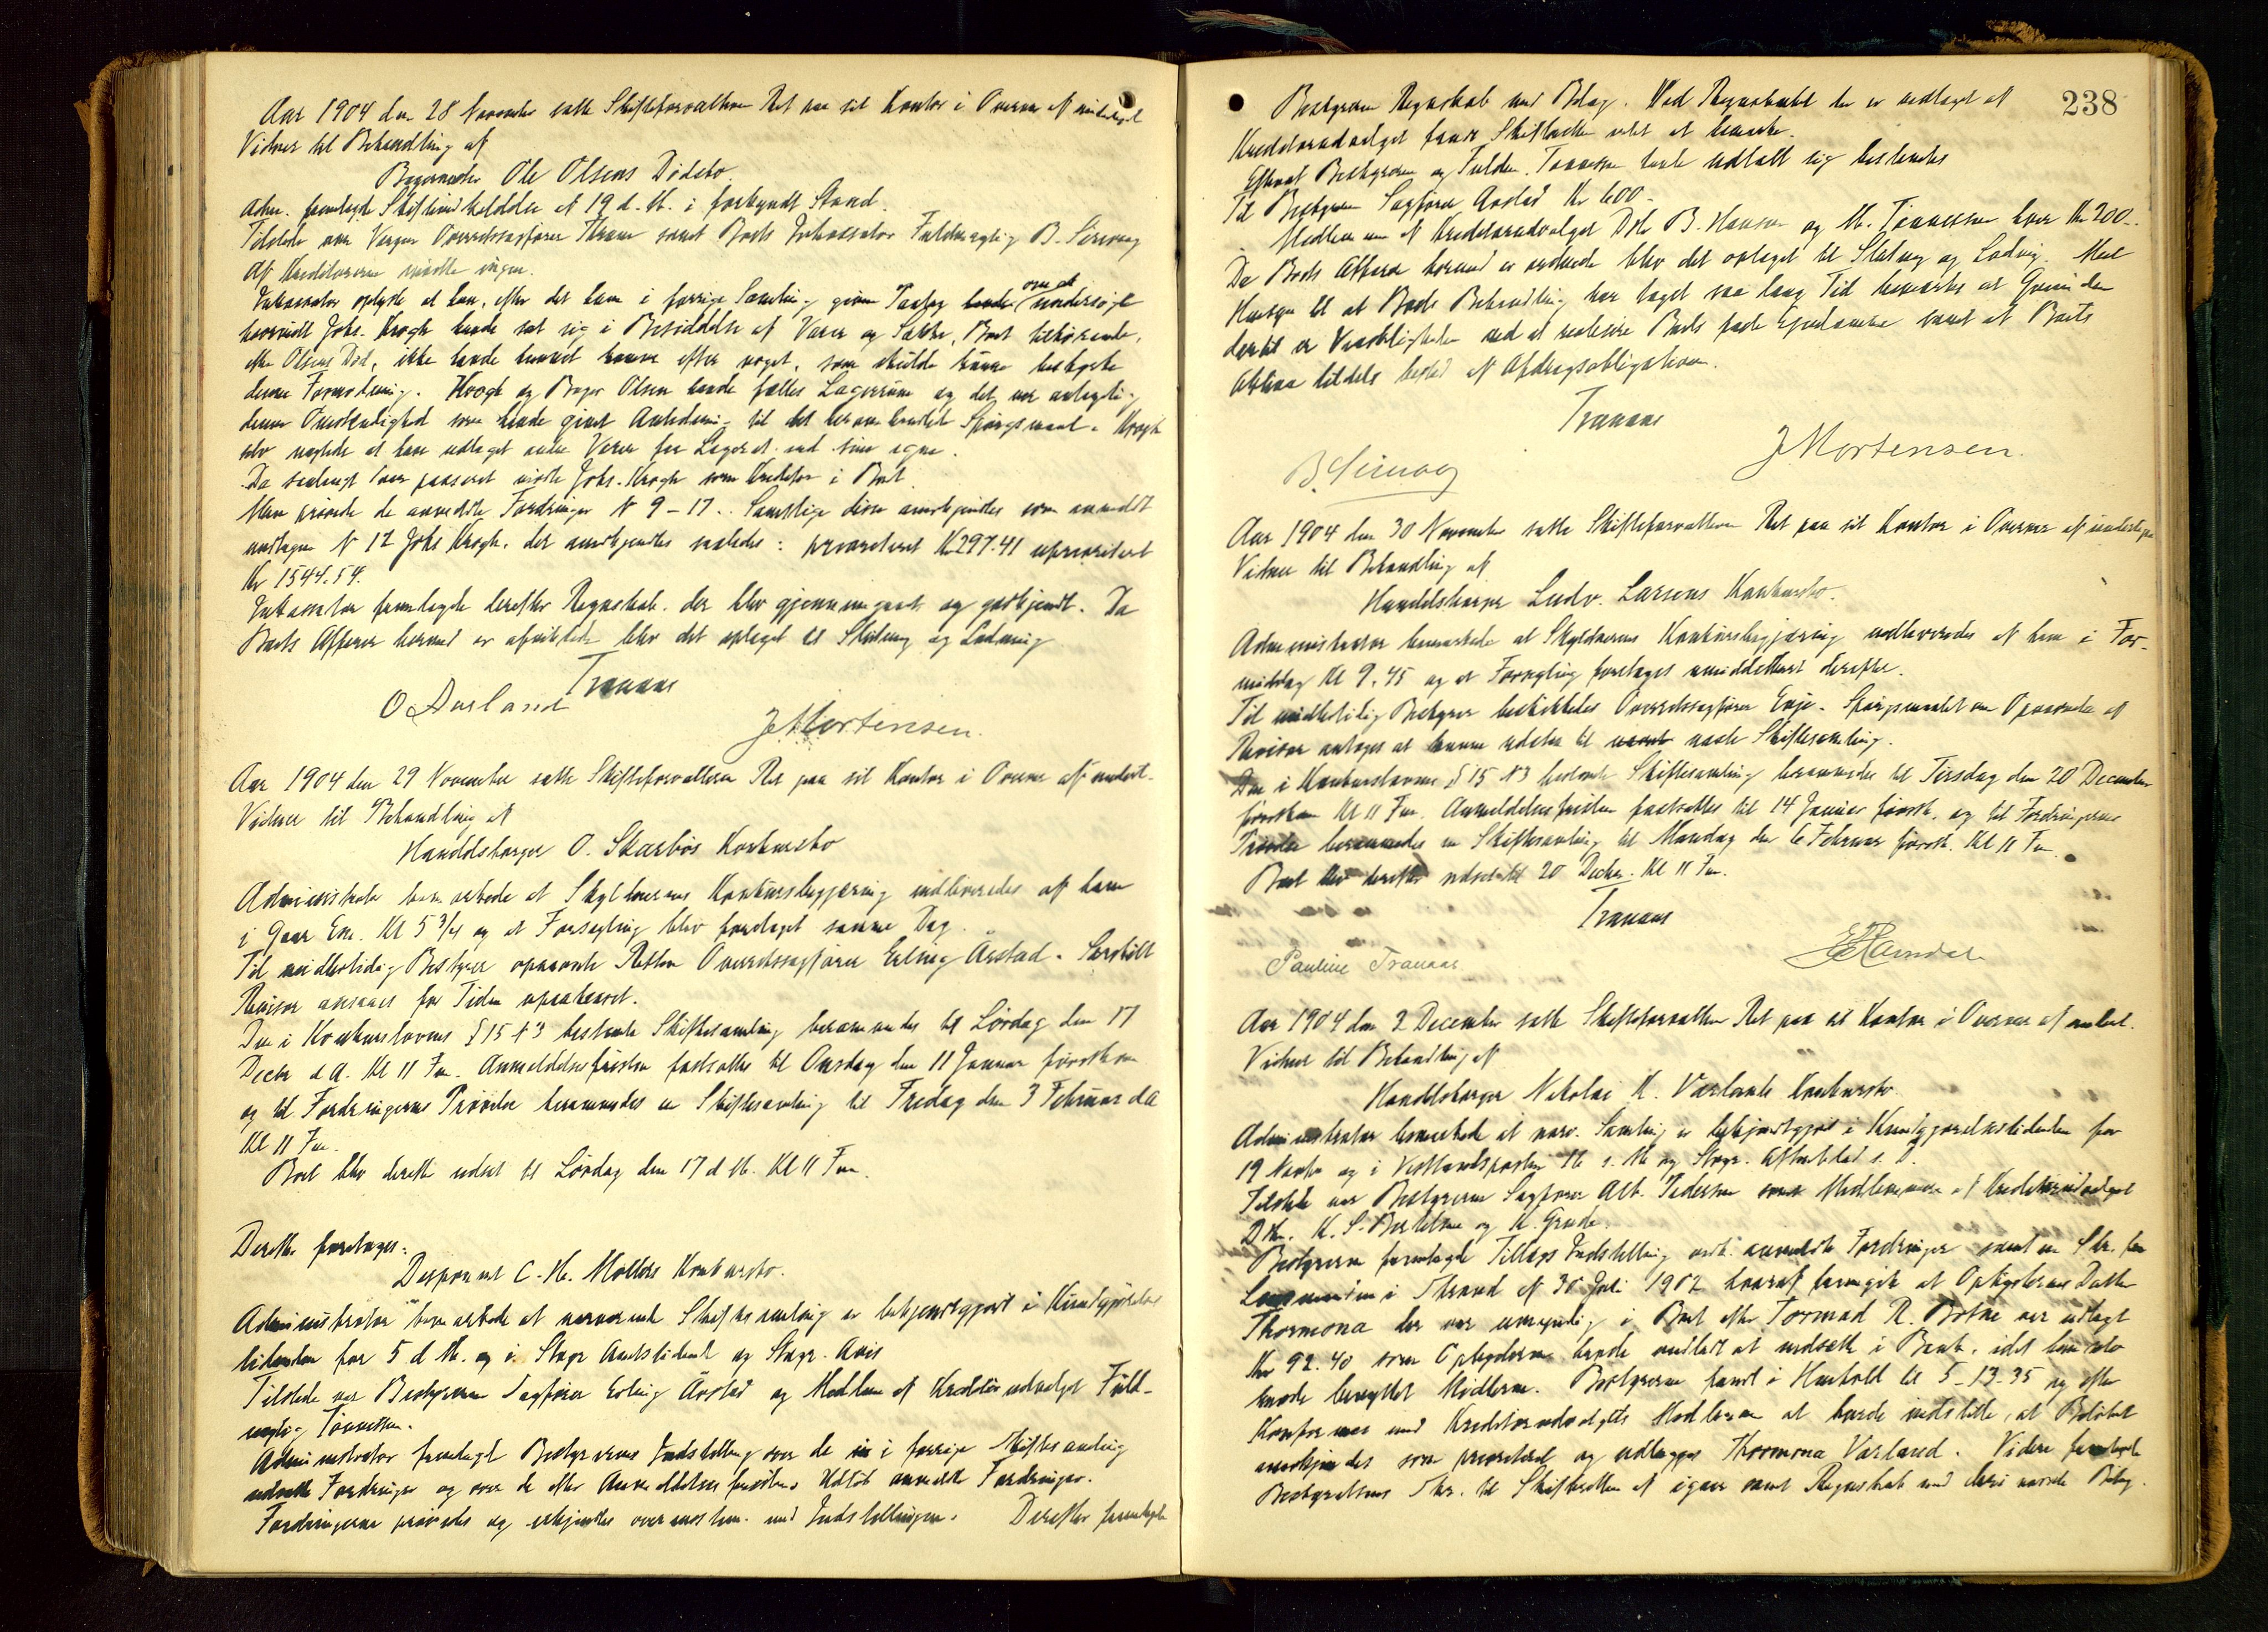 Aar 1904 den 28 November satte Skifteforvalteren Ret paa sit Kontor i Overvær af undertegnet
Vidner til Behandling af
Bagermester Ole Olsens Dödsbo.
Adm. fremlagde Skifteindkaldelse af 19 d.M. i forkyndt Stand.
Tilstede var Vergen Overretssagfører samt Boets Inkassator Fuldmægtig B. Sirevaag
Af Kreditorerne mødte ingen.
Inkassator oplyste at han, efter det ham i forrige Samling givne Paalæg om at undersöge
hvorvidt Johs. Krogh havde sat sig i Besiddelse af Varer og Sække, Boet tilhørende,
efter Olsens Död, ikke havde kunnet komme efter noget, som skulde kunne bestyrke
denne Formodning. Krogh og Bager Olsen havde fælles Lagerrum og det var antagelig
denne Omstændighed som havde givet Anledning til det her omhandlede Spørgsmaal. Krogh
selv nægtede at have udtaget andre Varer fra Lageret end sine egne.
Da saalangt var passeret mødte Johs. Krogh som Kreditor i Boet.
Man prövede de anmeldte Fordringer N 9-17. Samtlige disse anerkjendtes som anmeldt
undtagen N 12 Johs Krogh, der anerkjendtes saaledes: prioriteret Kr 297.41 uprioritert
Kr 1544.54.
Inkassator fremlagde derefter Regnskab, der blev gjennemgaaet og godkjendt. Da
Boets Affærer hermed er afviklede blev det optaget til Slutning og Lodning
Tranaas
O Aurland
J Mortensen.
Aar 1904 den 29 November satte Skifteforvalteren Ret paa sit Kontor i Overvær af undert.
Vidner til Behandling af
Handelsborger O. Skarbös Konkursbo
Administrator bemærkede at Skyldnerens Konkursbegjæring indleveredes af ham
i Gaar Em. Kl 5 3/4 og at Forsegling blev foretaget samme Dag.
Til midlertidig Bestyrer opnævnte Retten Overretssagfører Erling Årstad. Særskilt
Revisor ansaaes for Tiden upaakrævet.
Den i Konkurslovens § 15 N 3 bestemte Skiftesamling berammedes til Lördag den 17
Decbr d.A. Kl 11 Fm. Anmeldelsesfristen fastsattes til Onsdag den 11 Januar förstkom
og til Fordringernes Prövelse berammedes en Skiftesamling til Fredag den 3 Februar d A
Kl 11 Fm.
Boet blev derefter udsat til Lördag den 17 d M. Kl 11 Fm.
Derefter foretoges:
Disponent C. M. Möllers Konkursbo.
Administrator bemærkede at nærværende Skiftesamling er bekjendtgjort i Kundgjørelses
tidenden for 5 d M. og i Stvgr Amtstidende og Stvgr. Avis
Tilstede var Bestyreren Sagfører Erling Årstad og Medlem af Kreditorudvalget Fuld-
mægtig Tönnessen.
Administrator fremlagde Bestyrerens Indstilling over de i forrige Skiftesamling
udsatte Fordringer og over de efter Anmeldelsesfristens Udløb anmeldte Fordringer.
Fordringerne prövedes og erkjendtes overensstem. med Indstillingen. Derefter fremlagde
238
Bestyreren Regnskab med Bilag. Ved Regnskabet der er vedtaget af
Kreditorudvalget fandt Skifteretten intet at bemærke.
Efterat Bestyreren og Fuldm. Tönnessen havde udtalt sig bestemtes
Til Bestyreren Sagfører Aarstad Kr 600.-
Medlemmer af Kreditorudvalget DHr B. Hansen og M. Tönnessen hver Kr 200.-
Da Boets Affærer hermed er ordnede blev det optaget til Slutning og Lodning. Med
Hensyn til at Boets Behandling har taget saa lang Tid bemærkes at Grunden
dertil er Vanskeligheden ved at realisere Boets faste Eiendomme samt at Boets
Aktiva tildels bestod af Afdragsobligationer.
Tranaas
B. Sirevaag
J Mortensen.
Aar 1904 den 30 November satte Skifteforvalteren Ret paa sit Kontor i Overvær af undertegnede
Vidner til Behandling af
Handelsborger Ludv. Larsens Konkursbo.
Administrator bemærkede at Skyldnerens Konkursbegjæring indleveredes af ham i For-
middag Kl 9.45 og at Forsegling foretoges umiddelbart derefter.
Til midlertidig Bestyrer beskikkedes Overretssagfører Eeje. Spørgsmaalet om Opnævnelse af
Revisor antages at kunne udstaa til næste Skiftesamling.
Den i Konkurslovens § 15 N 3 bestemte Skiftesamling berammedes til Tirsdag den 20 December
förstkom Kl 11 Fm. Anmeldelsesfristen fastsattes til 14 Januar förstk. og til Fordringernes
Prövelse berammedes en Skiftesamling til Mandag den 6 Februar förstk. Kl 11 Fm.
Boet blev derefter udsat til 20 Decbr. Kl 11 Fm.
Tranaas
Pauline Tranaas
Aar 1904 den 2 December satte Skifteforvalteren Ret paa sit Kontor i Overvær af undert.
Vidner til Behandling af
Handelsborger Nikolai K. Varlands Konkursbo
Administrator bemærkede at nærv. Samling er bekjendtgjort i Kundgjørelsestidenden for
19 Novbr og i Vestlandsposten s. M. og Stvgr. Aftenblad s. D.
Tilstede var Bestyreren Sagfører Alb. Pedersen Medlemmerne af Kreditorudvalget
DHr. K. S. Bertelsen og K. Grude.
Bestyreren fremlagde Tillægs Indstilling vedk. anmeldte Fordringer samt en Skr. fra
i Strand af 30 Juli 1902 hvoraf fremgik at Opbyderens Datter
Thormona der var umyndig i Boet efter Tormod R. Botne var udlagt
Kr 92.40 som Opbyderen havde undladt at indsætte i Bank, idet han selv
havde benyttet Midlerne. Bestyreren fandt i Henhold til 5-13-35 og efter
Konference med Kreditorudvalgets Medlemmer at burde indstille, at Beløbet
anerkjendes som prioriteret og udlægges Thormona Varland. Videre fremlagde
Bestyrelsens Skr. til Skifteretten af igaar samt Regnskab med deri nævnte Bilag.